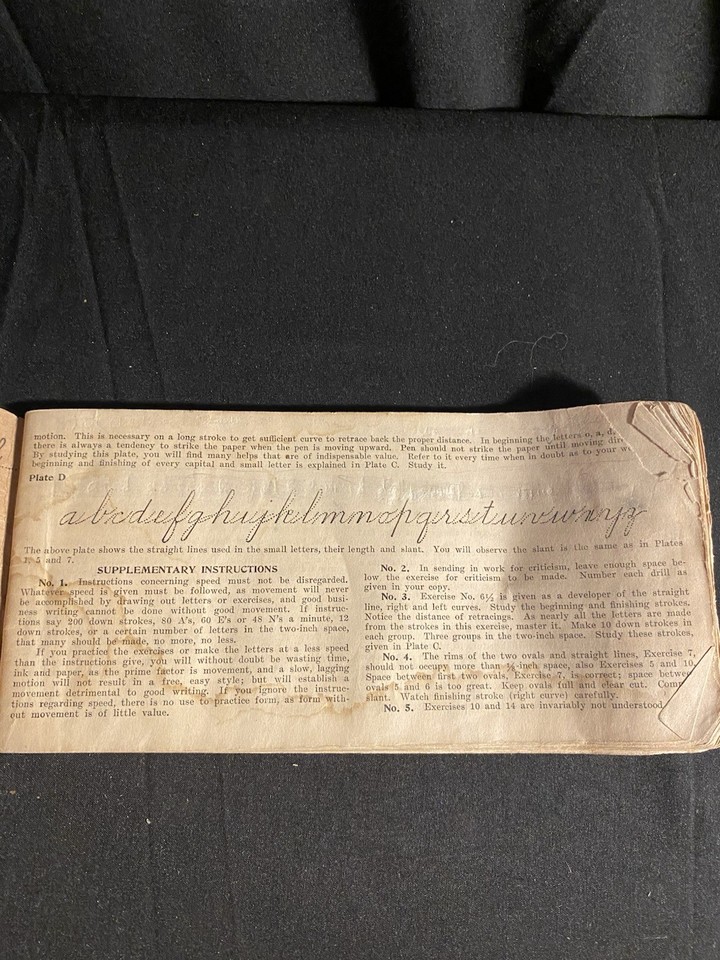 motion. This is necessary on a long stroke to get sufficient curve to retrace back the proper distance. In beginning the letters o, a, d,
there is always a tendency to strike the paper when the pen is moving upward. Pen should not strike the paper until moving
By studying this plate, you will find many helps that are of indispensable value. Refer to it every time when in doubt as to your
beginning and finishing of every capital and small letter is explained in Plate C. Study it.
Plate D
a b c d e f g h i j k l m n o p q r s t u v w x y z
The above plate shows the straight lines used in the small letters, their length and slant. You will observe the slant is the same as in Plates
1, 5 and 7.
SUPPLEMENTARY INSTRUCTIONS
No. 1. Instructions concerning speed must not be disregarded.
Whatever speed is given must be followed, as movement will never
be accomplished by drawing out letters or exercises, and good busi-
ness writing cannot be done without good movement. If instruc-
tions say 200 down strokes, 80 A's, 60 E's or 48 N's a minute, 12
down strokes, or a certain number of letters in the two-inch space,
that many should be made, no more, no less.
If you practice the exercises or make the letters at a less speed
than the instructions give, you will without doubt be wasting time,
ink and paper, as the prime factor is movement, and a slow, lagging
motion will not result in a free, easy style; but will establish a
movement detrimental to good writing. If you ignore the instruc-
tions regarding speed, there is no use to practice form, as form with-
out movement is of little value.
No. 2. In sending in work for criticism, leave enough space be-
low the exercise for criticism to be made. Number each drill as
given in your copy.
No. 3. Exercise No. 6½ is given as a developer of the straight
line, right and left curves. Study the beginning and finishing strokes.
Notice the distance of retracings. As nearly all the letters are made
from the strokes in this exercise, master it. Make 10 down strokes in
each group. Three groups in the two-inch space. Study these strokes,
given in Plate C.
No. 4. The rims of the two ovals and straight lines, Exercise 7,
should not occupy more than ⅝-inch space, also Exercises 5 and 10.
Space between first two ovals, Exercise 7, is correct; space
ovals 5 and 6 is too great. Keep ovals full and clear cut.
slant. Watch finishing stroke (right curve) carefully.
No. 5. Exercises 10 and 14 are invariably not understood